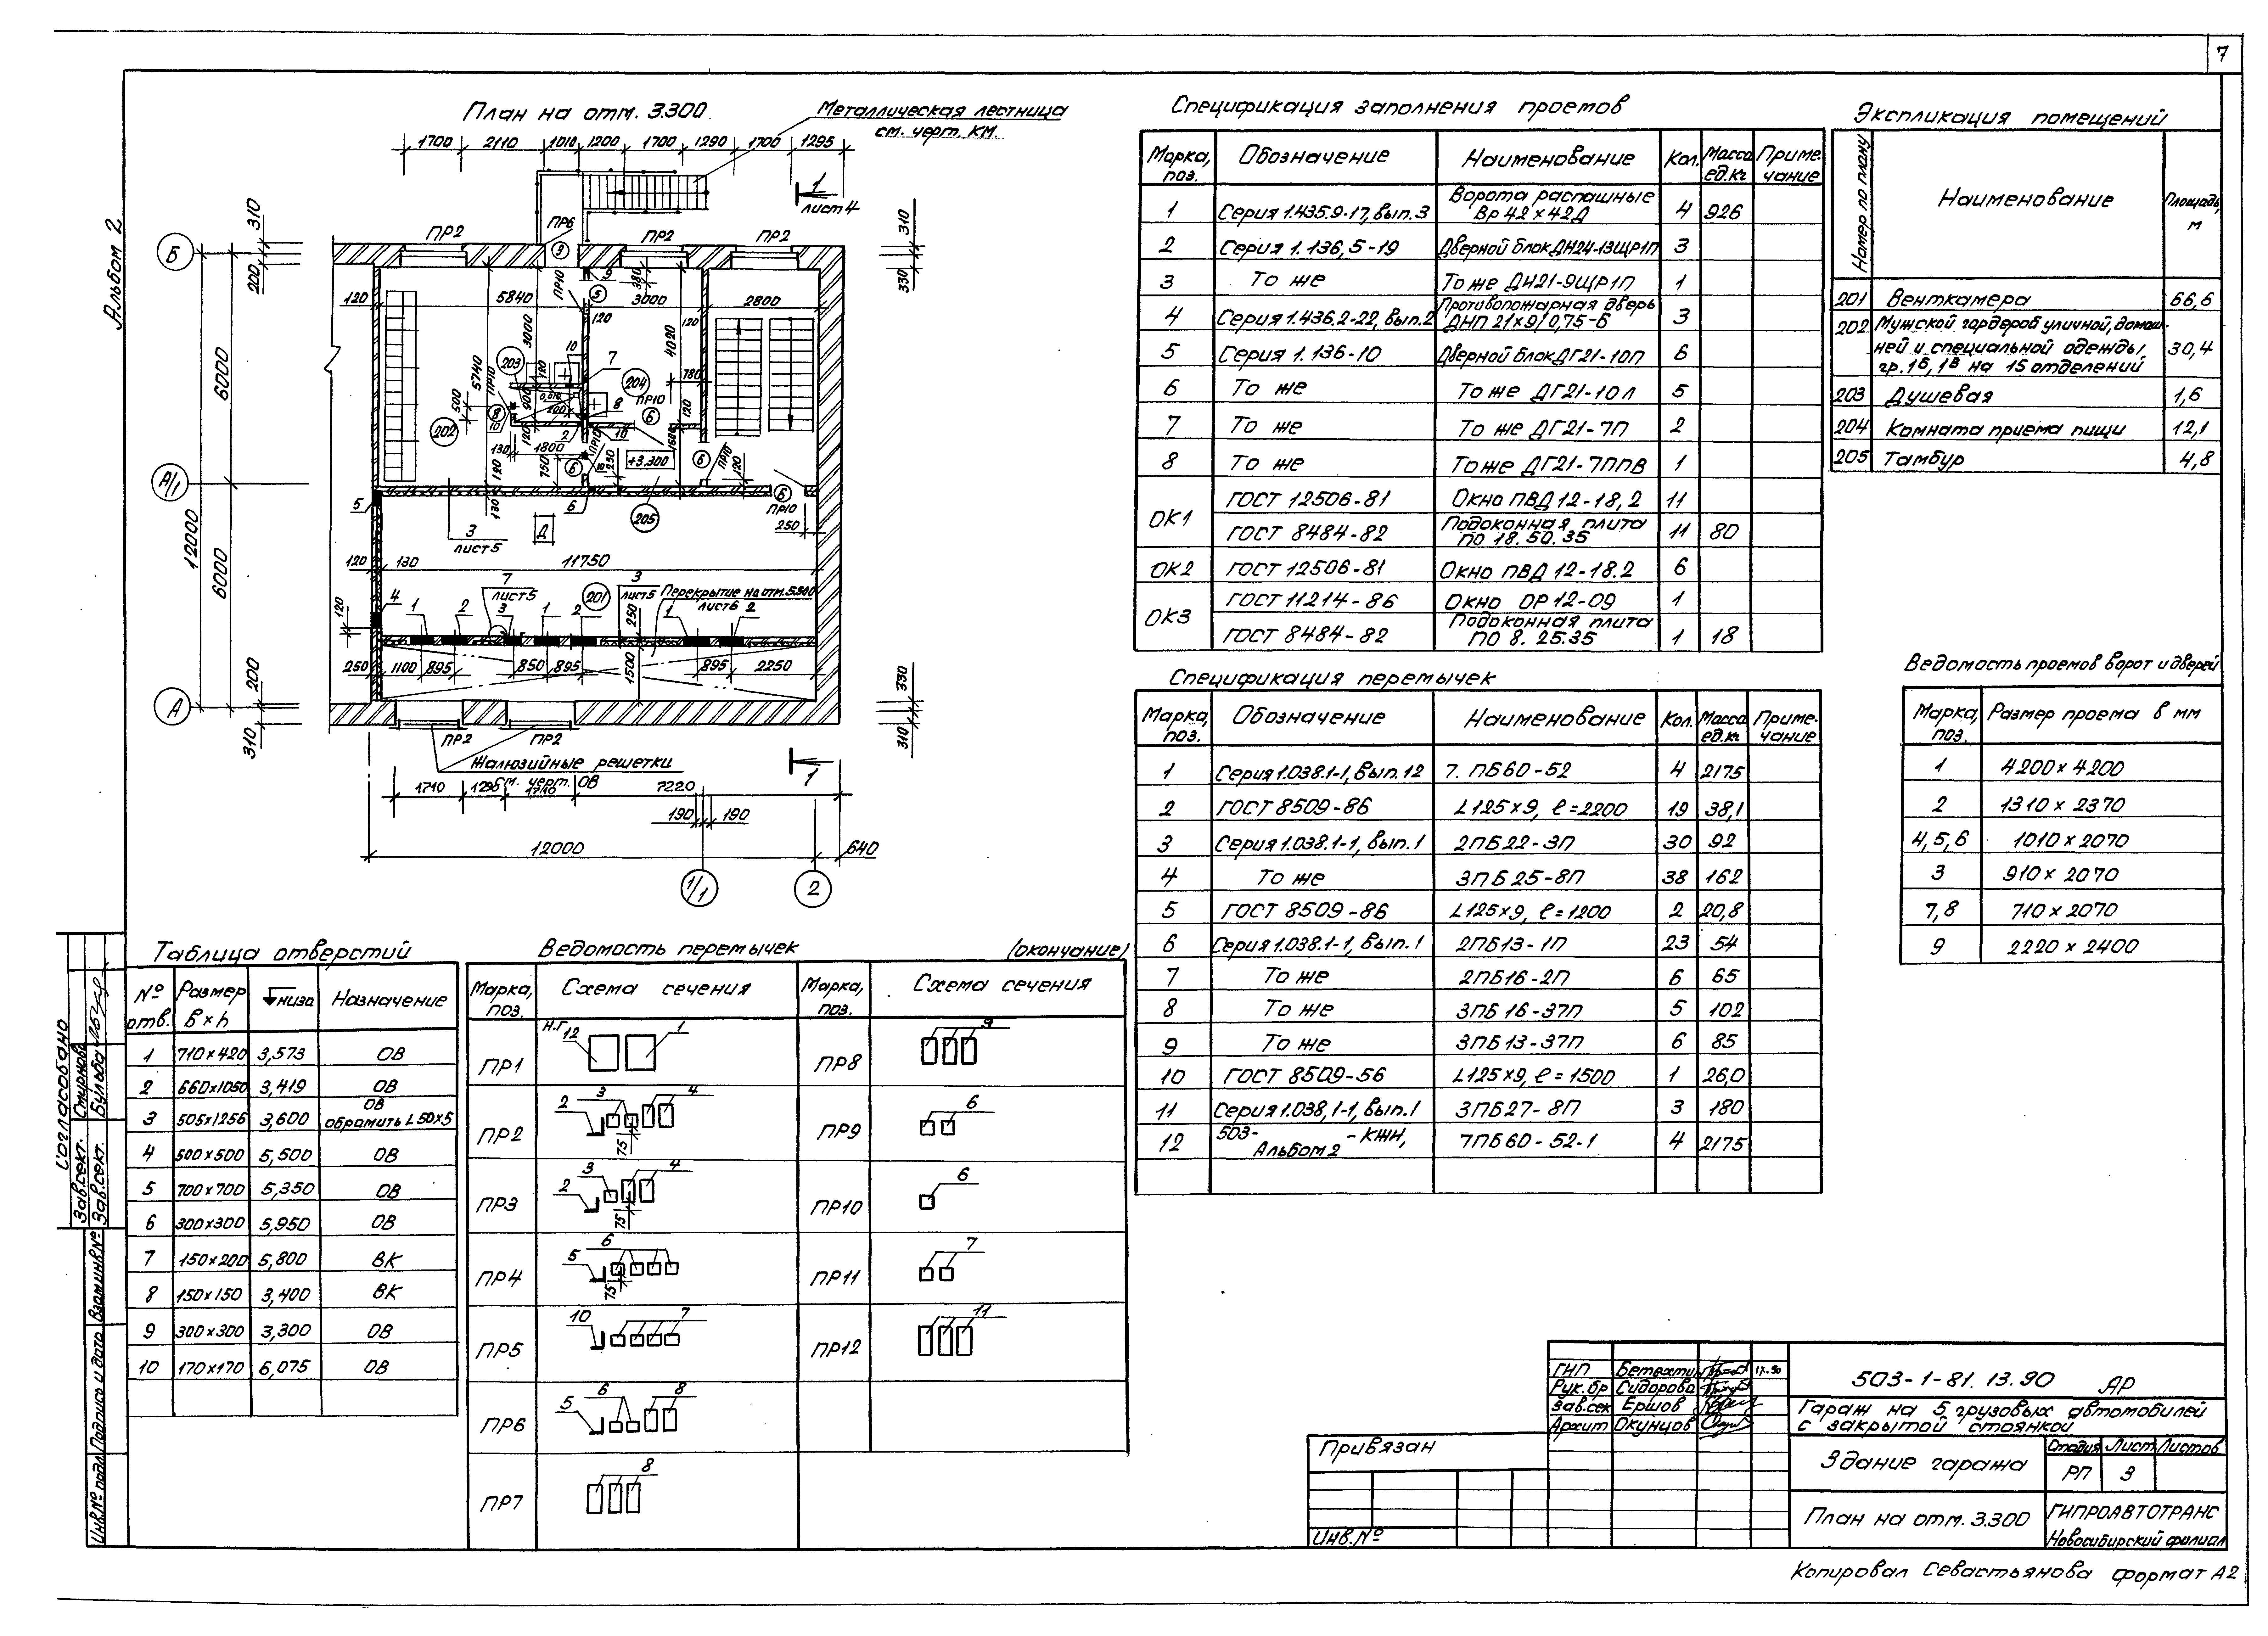 7
Альбом 2
План на отм. 3.300
Металлическая лестница
см. черт. КМ.
1700 2110 1010 1200 1700 1290 1700 1295
1
лист 4
ПР2 ПР6 ПР2 ПР2
310
200
6000
12000
6000
200
310
Б
А/1
А
310
330
330
310
120 5840 3000 2800
3000
5740
4020
380
780
1600
500
900
1800
130
750
250
120
ПР10
+3.300
201
202
203
204
205
Д
3
лист 5
7
лист 5
3
лист 5
Перекрытие на отм. 5.500
лист 6
120 130 11750
250
1500
250 1100 895 850 895 895 2250
ПР2 ПР2
Жалюзийные решетки
см. черт. ОВ
1710 1290 1710 7220
190 190
12000 640
1/1
2
1
Спецификация заполнения проемов
Марка, поз. Обозначение Наименование Кол. Масса ед.кг Примечание
1 Серия 1.435.9-17, вып. 3 Ворота распашные Вр 42 × 42Д 4 926
2 Серия 1. 136,5-19 Дверной блок ДН24-13ЩР1П 3
3 То же То же ДН21-9ЩР1П 1
4 Серия 1.436.2-22, вып.2 Противопожарная дверь ДНП 21×9/0,75-Б 3
5 Серия 1. 136-10 Дверной блок ДГ21-10П 6
6 То же То же ДГ21-10Л 5
7 То же То же ДГ21-7П 2
8 То же То же ДГ21-7ППВ 1
ОК1 ГОСТ 12506-81 Окно ПВД 12-18,2 11
ГОСТ 8484-82 Подоконная плита ПО 18.50.35 11 80
ОК2 ГОСТ 12506-81 Окно ПВД 12-18.2 6
ОК3 ГОСТ 11214-86 Окно ОР 12-09 1
ГОСТ 8484-82 Подоконная плита ПО 8. 25.35 1 18
Экспликация помещений
Номер по плану Наименование Площадь, м
201 Венткамера 66,6
202 Мужской гардероб уличной, домаш-
ней и специальной одежды, 30,4
гр. 1б, 1в на 15 отделений
203 Душевая 1,6
204 Комната приема пищи 12,1
205 Тамбур 4,8
Спецификация перемычек
Марка, поз. Обозначение Наименование Кол. Масса ед.кг Примечание
1 Серия 1.038.1-1, вып. 12 7. ПБ60-52 4 2175
2 ГОСТ 8509-86 L125×9, ℓ=2200 19 38,1
3 Серия 1.038.1-1, вып. 1 2ПБ22-3П 30 92
4 То же 3ПБ25-8П 38 162
5 ГОСТ 8509-86 L125×9, ℓ=1200 2 20,8
6 Серия 1.038.1-1, вып. 1 2ПБ13-1П 23 54
7 То же 2ПБ16-2П 6 65
8 То же 3ПБ16-37П 5 102
9 То же 3ПБ13-37П 6 85
10 ГОСТ 8509-56 L125×9, ℓ=1500 1 26,0
11 Серия 1.038,1-1, вып. 1 3ПБ27-8П 3 180
12 503- Альбом 2 -КЖН, 7ПБ60-52-1 4 2175
Ведомость проемов ворот и дверей
Марка, поз. Размер проема в мм
1 4200×4200
2 1310×2370
4,5,6 1010×2070
3 910×2070
7,8 710×2070
9 2220×2400
Таблица отверстий
№ отв. Размер b×h низа Назначение
1 710×420 3,573 ОВ
2 660×1050 3,419 ОВ
3 505×1256 3,600 ОВ обрамить L50×5
4 500×500 5,500 ОВ
5 700×700 5,350 ОВ
6 300×300 5,950 ОВ
7 150×200 5,800 ВК
8 150×150 3,400 ВК
9 300×300 3,300 ОВ
10 170×170 6,075 ОВ
Ведомость перемычек (окончание)
Марка, поз. Схема сечения Марка, поз. Схема сечения
ПР1 12 1 ПР8 9
ПР2 2 3 4 75 ПР9 6
ПР3 2 3 4 75 ПР10 6
ПР4 5 6 75 ПР11 7
ПР5 10 7 ПР12 11
ПР6 5 6 8
ПР7 8
Согласовано
Зав.сект. Смирнова
Зав.сект. Бульба
Взам.инв.№
Подпись и дата
Инв.№ подл.
Привязан
Инв.№
ГИП Бетехтин IX.90
Рук.бр Сидорова
Зав.сек Ершов
Архит Окунцов
503-1-81.13.90 АР
Гараж на 5 грузовых автомобилей
с закрытой стоянкой
Здание гаража
Стадия Лист Листов
РП 3
План на отм. 3.300
ГИПРОАВТОТРАНС
Новосибирский филиал
Копировал Севастьянова формат А2